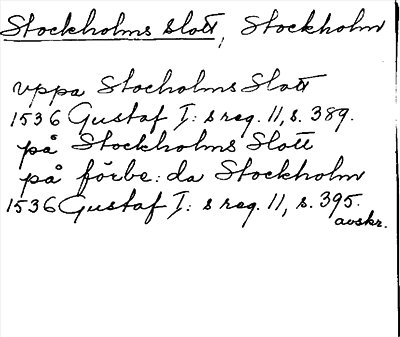 Stockholms slott, Stockholm
vppa Stocholms Slott
1536 Gustaf I: s reg. 11, s. 389.
på Stockholms Slott
på förbe: da Stockholm
1536 Gustaf I: s reg. 11, s. 395.
avskr.